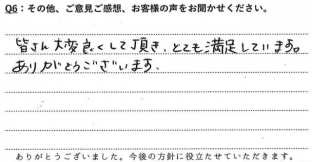 Q6：その他、ご意見ご感想、お客様の声をお聞かせください。
皆さん大変良くして頂き、とても満足しています。
ありがとうございます。
ありがとうございました。今後の方針に役立たせていただきます。